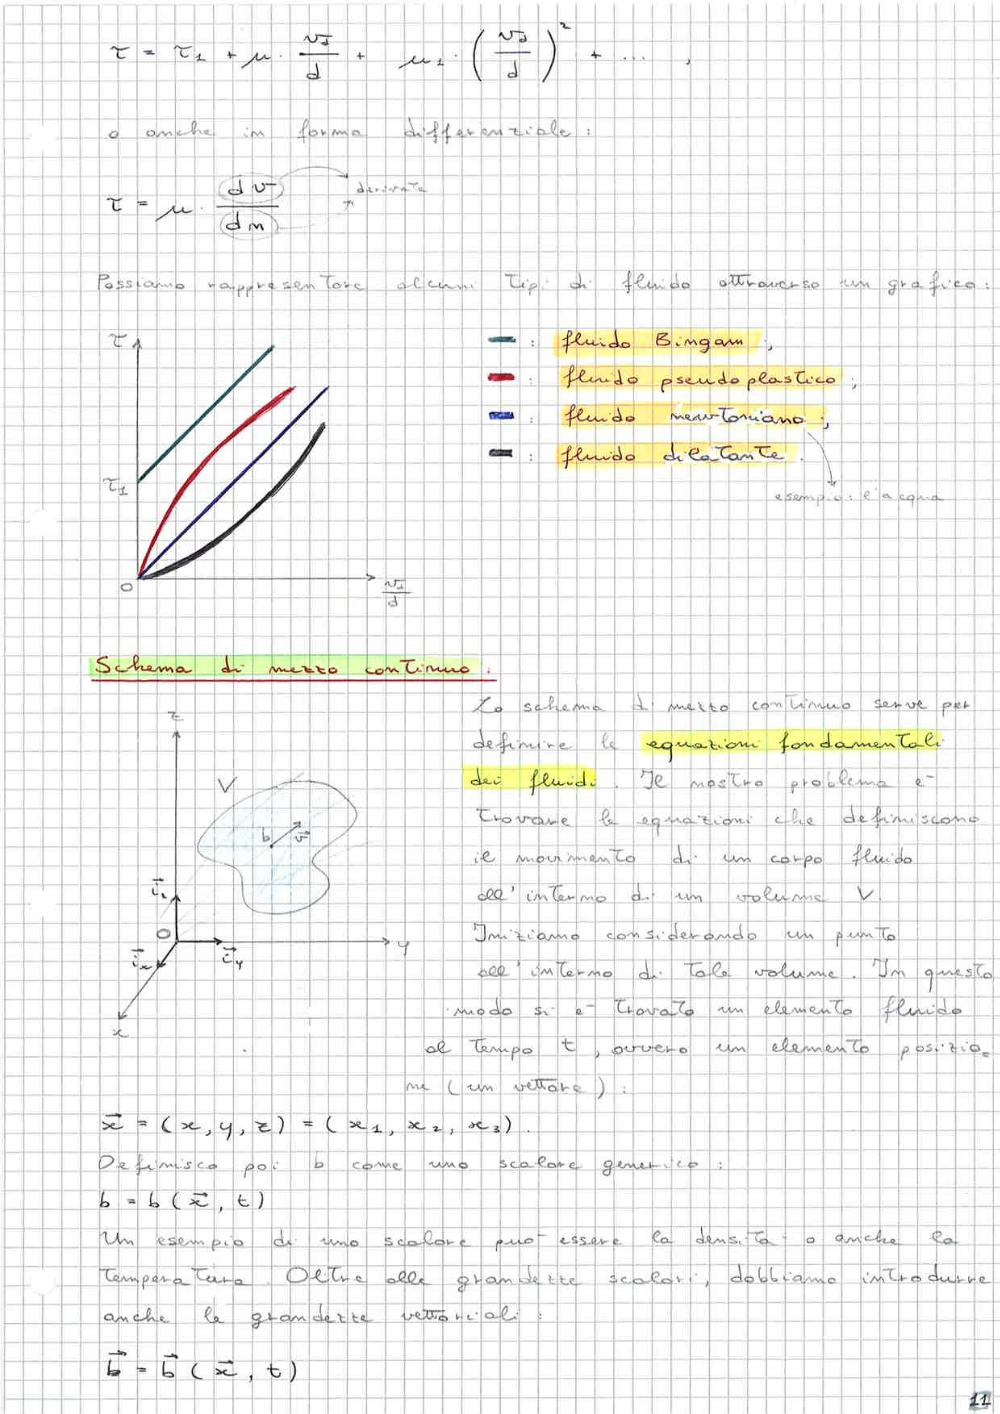 τ = τ₁ + μ · v₁/d + μ₁ · (v₁/d)² + ... ,
o anche in forma differenziale :
τ = μ · dv/dn
derivate
Possiamo rappresentare alcuni tipi di fluido attraverso un grafico :
τ
τ₁
O
v₁/d
: fluido Bingam ;
: fluido pseudoplastico ;
: fluido newtoniano ;
: fluido dilatante .
esempio : l'acqua
Schema di mezzo continuo .
z
V
b
v⃗
i⃗z
O
i⃗x
i⃗y
y
x
Lo schema di mezzo continuo serve per
definire le equazioni fondamentali
dei fluidi . Il nostro problema è
trovare le equazioni che definiscono
il movimento di un corpo fluido
all'interno di un volume V.
Iniziamo considerando un punto
all'interno di tale volume. In questo
modo si è trovato un elemento fluido
al tempo t , ovvero un elemento posizio=
ne ( un vettore ) :
x⃗ = ( x, y, z ) = ( x₁, x₂, x₃ ) .
Definisco poi b come uno scalare generico :
b = b ( x⃗ , t )
Un esempio di uno scalare può essere la densità o anche la
temperatura. Oltre alle grandezze scalari, dobbiamo introdurre
anche le grandezze vettoriali :
b⃗ = b⃗ ( x⃗ , t )
11